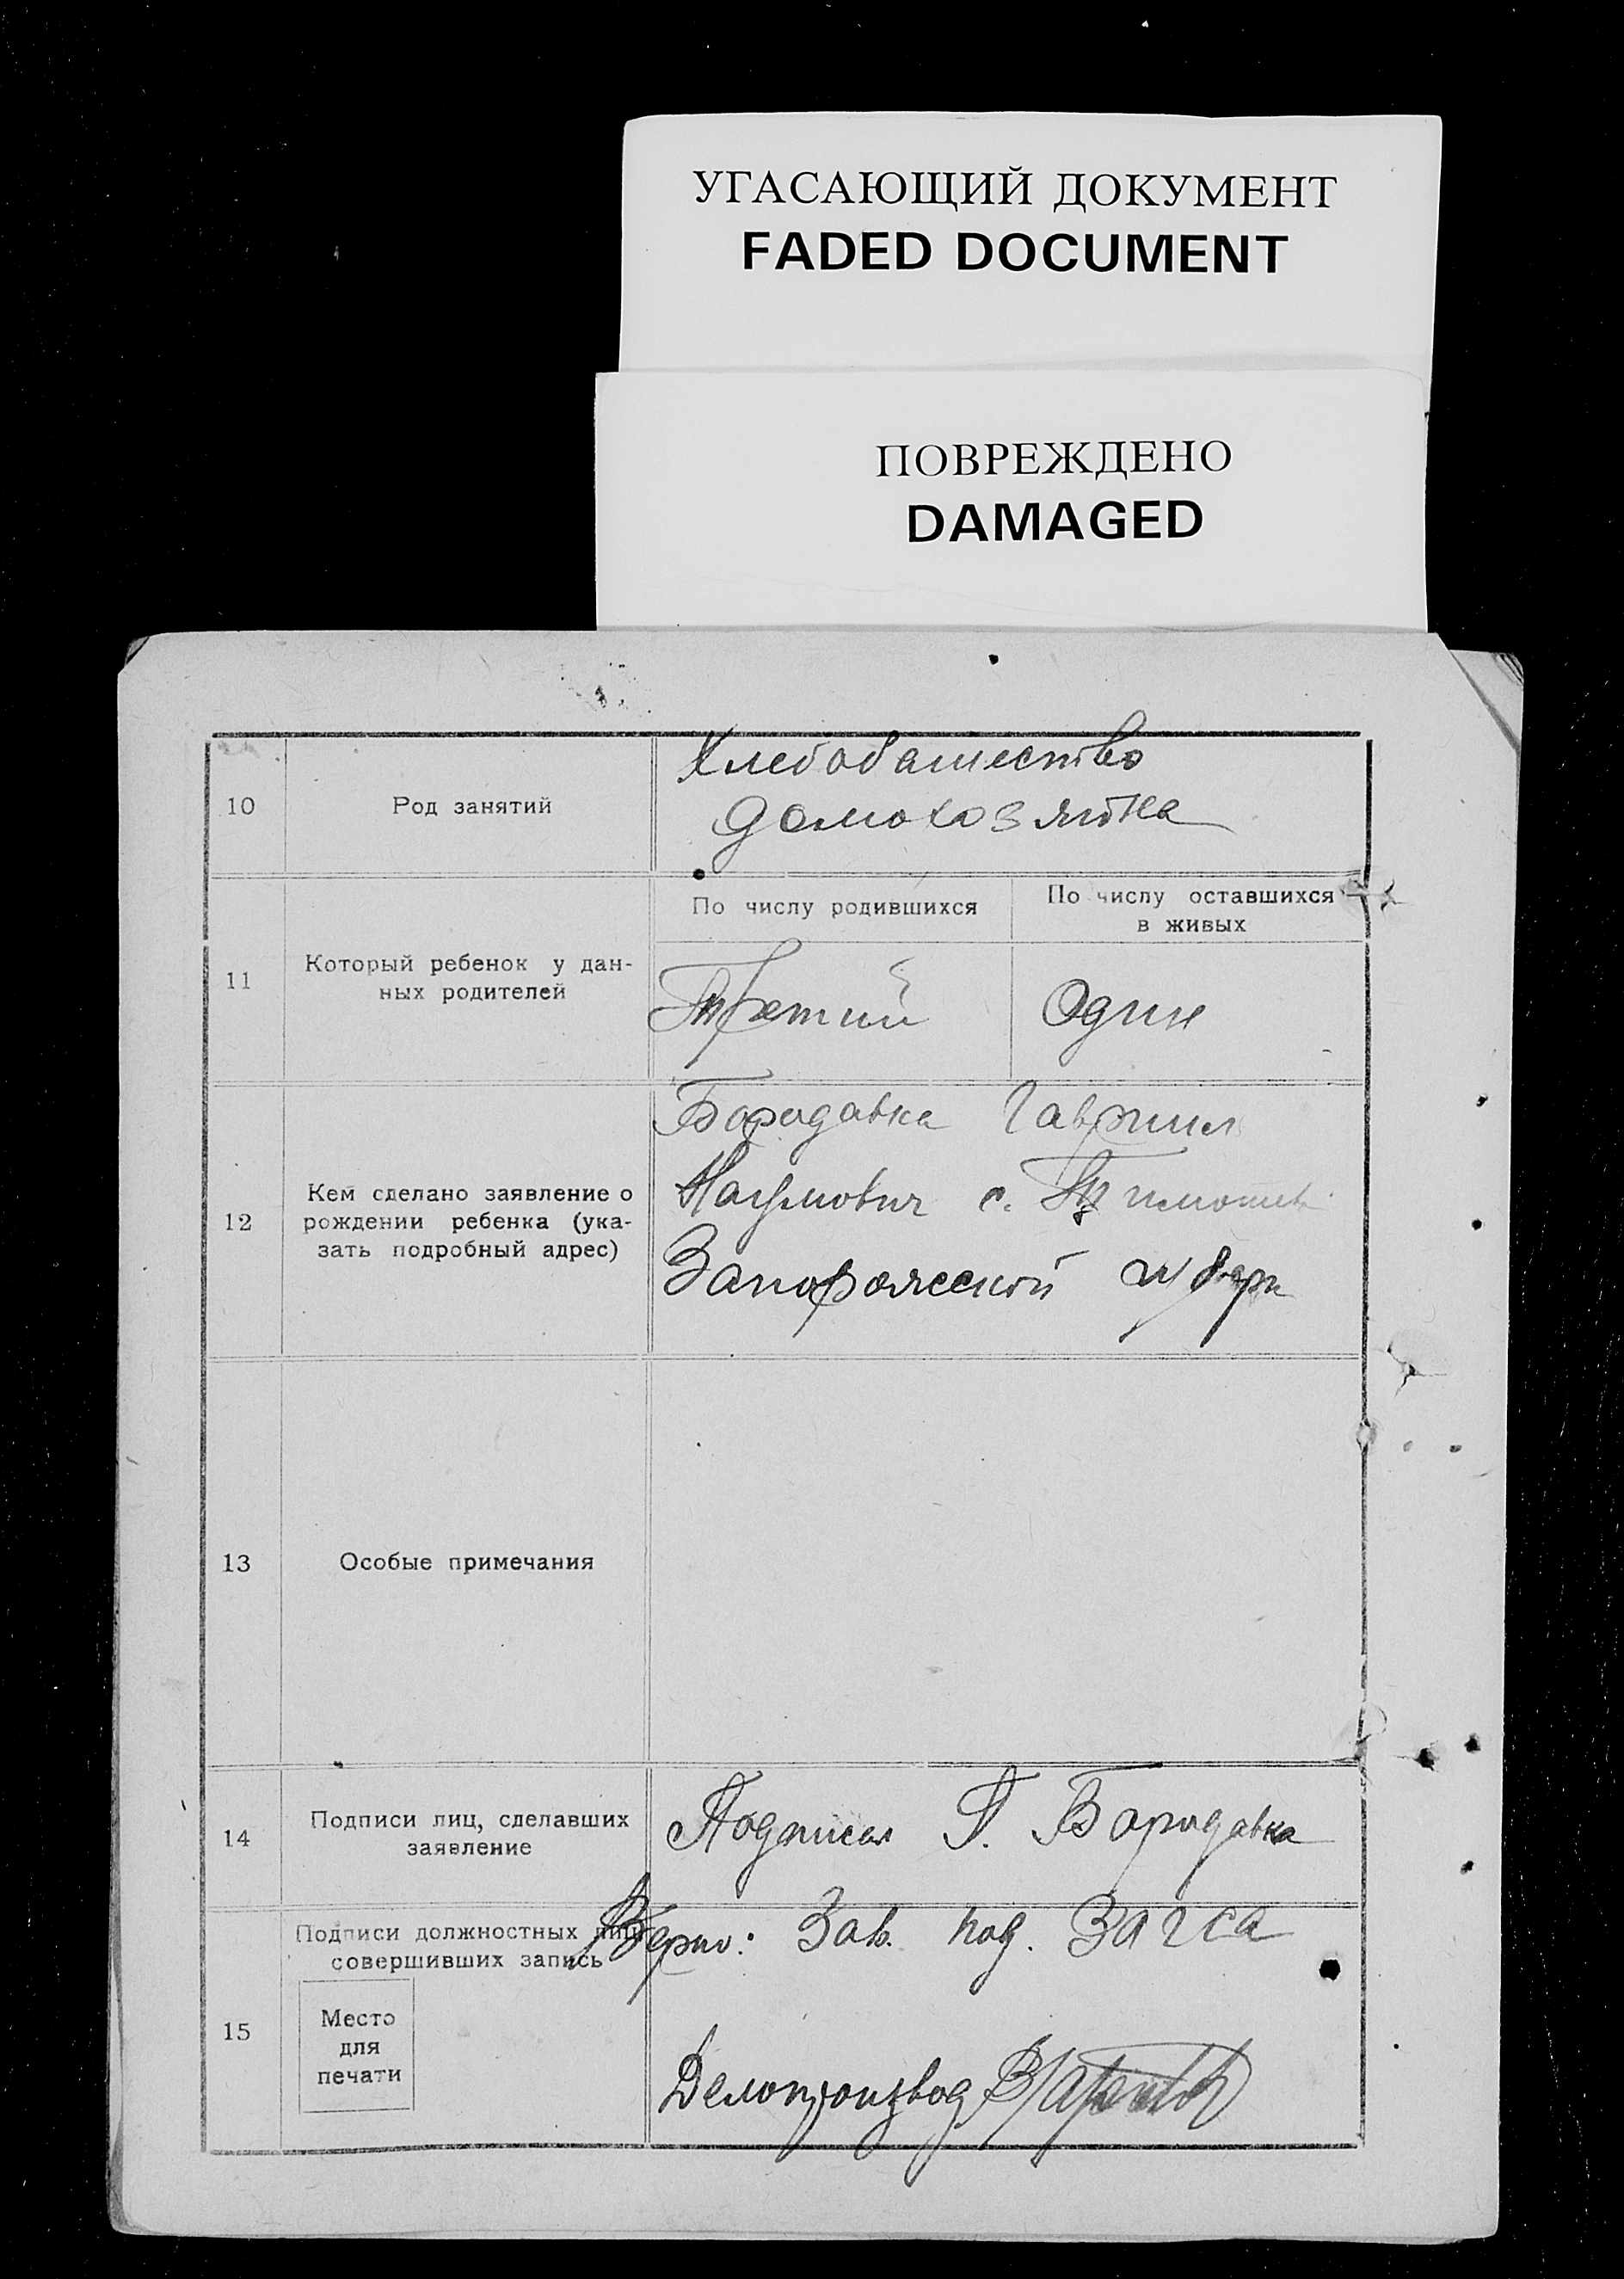 УГАСАЮЩИЙ ДОКУМЕНТ
FADED DOCUMENT
ПОВРЕЖДЕНО
DAMAGED
10
Род занятий
Хлебопашество
домохозяйка
11
Который ребенок у дан-
ных родителей
По числу родившихся
Третий
По числу оставшихся
в живых
Один
12
Кем сделано заявление о
рождении ребенка (ука-
зать подробный адрес)
Бородавка Гавриил
Наумович с.
Запорожской губерн
13
Особые примечания
14
Подписи лиц, сделавших
заявление
Подписал Г. Бородавка
15
Подписи должностных лиц
совершивших запись
Место
для
печати
Верно: Зав. под. Загса
Делопроизвод